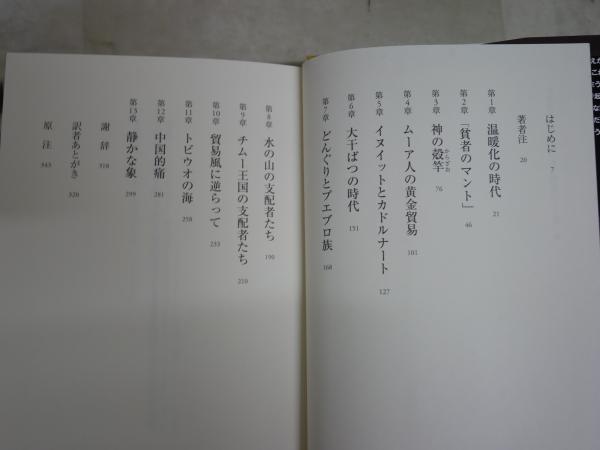 はじめに 7
著者注 20
第1章 温暖化の時代 21
第2章 「貧者のマント」 46
第3章 神の殻竿 からざお 76
第4章 ムーア人の黄金貿易 101
第5章 イヌイットとカドルナート 127
第6章 大干ばつの時代 151
第7章 どんぐりとプエブロ族 168
第8章 水の山の支配者たち 190
第9章 チムー王国の支配者たち 210
第10章 貿易風に逆らって 233
第11章 トビウオの海 258
第12章 中国的痛 281
第13章 静かな象 299
謝辞 318
訳者あとがき 320
原注 343